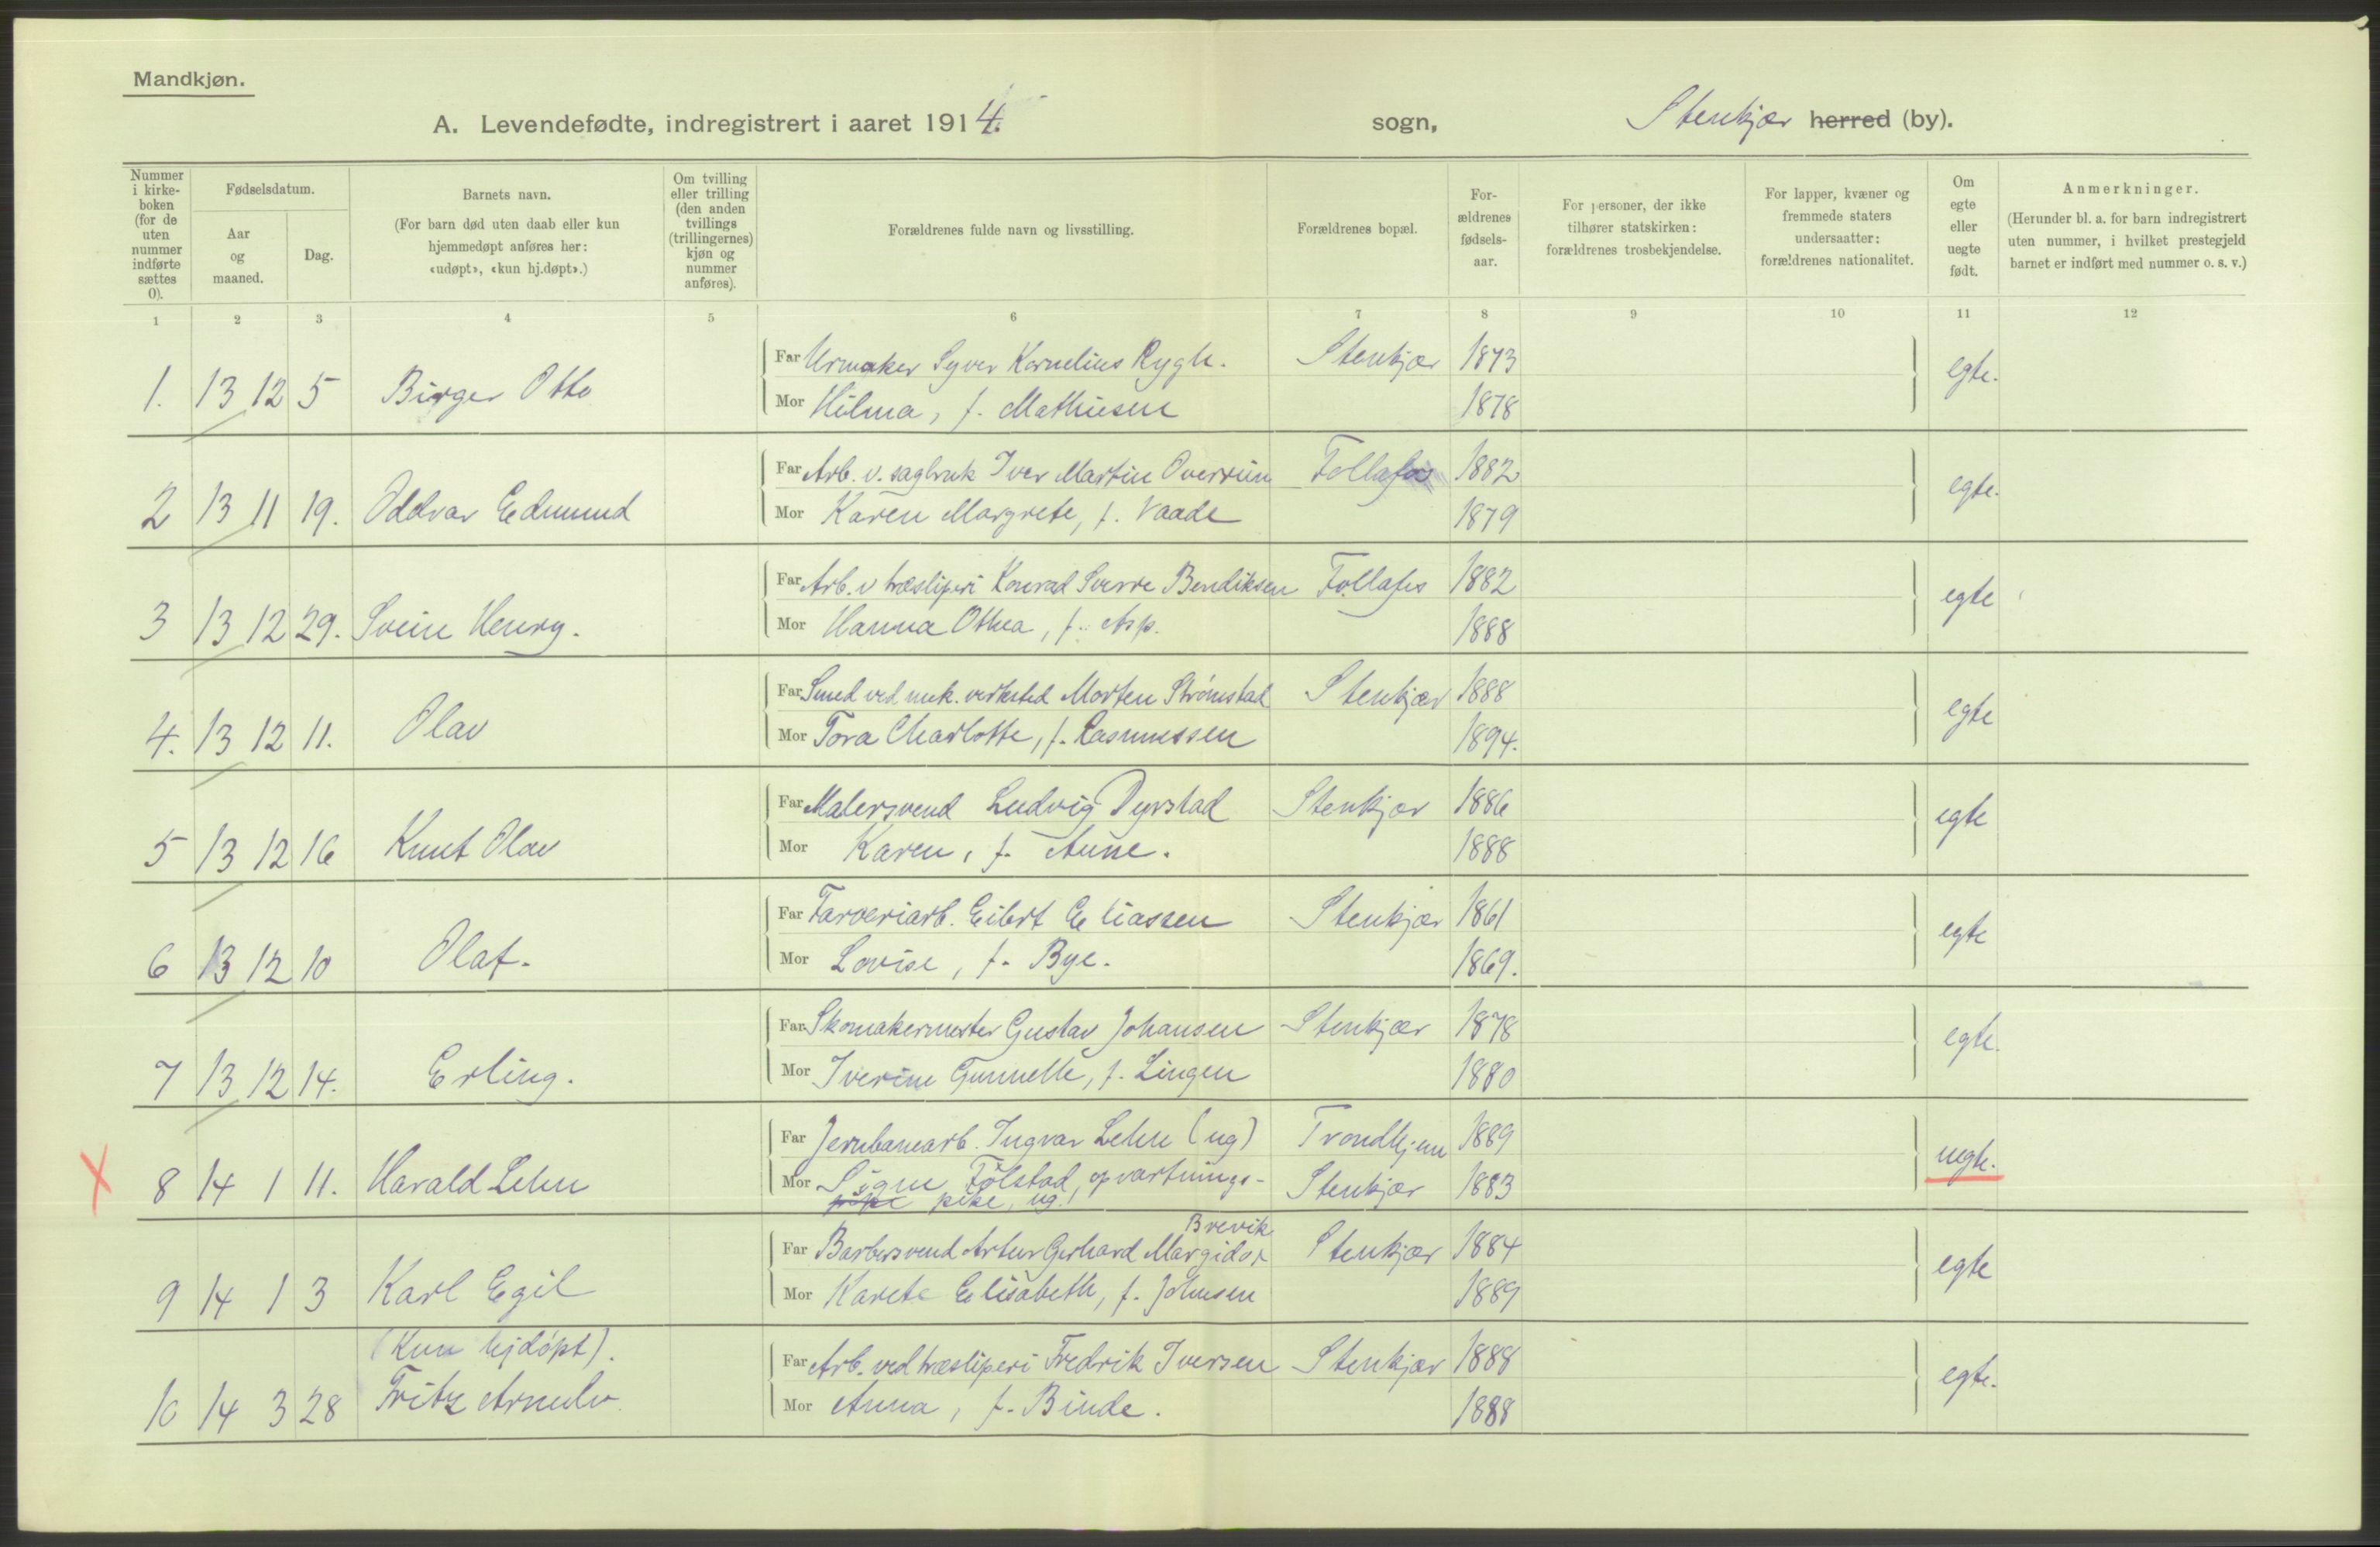 Mandkjøn.
A. Levendefødte, indregistrert i aaret 1914. sogn, Stenkjær herred (by).
Nummer i kirkeboken (for de uten nummer indførte sættes 0).
Fødselsdatum.
Aar og maaned.
Dag.
Barnets navn.
(For barn død uten daab eller kun hjemmedøpt anføres her: «udøpt», «kun hj.døpt».)
Om tvilling eller trilling (den anden tvillings (trillingernes) kjøn og nummer anføres).
Forældrenes fulde navn og livsstilling.
Forældrenes bopæl.
For-ældrenes fødsels-aar.
For personer, der ikke tilhører statskirken: forældrenes trosbekjendelse.
For lapper, kvæner og fremmede staters undersaatter: forældrenes nationalitet.
Om egte eller uegte født.
Anmerkninger.
(Herunder bl. a. for barn indregistrert uten nummer, i hvilket prestegjeld barnet er indført med nummer o. s. v.)
1 2 3 4 5 6 7 8 9 10 11 12
Far Urmaker Syver Kornelius Rygh. Stenkjær 1873
1. 13 12 5 Birger Otto egte.
Mor Hilma, f. Mathiesen 1878
Far Arb. v. sagbruk Iver Martin Overrein Follafos 1882
2 13 11 19. Oddvar Edmund egte.
Mor Karen Margrete, f. Vaade 1879
Far Arb. v træsliperi Konrad Sverre Bendiksen Follafos 1882
3 13 12 29. Svein Henry. egte
Mor Hanna Othea, f. Asp. 1888
Far Smed ved mek. verksted Morten Strømstad Stenkjær 1888
4. 13 12 11. Olav egte
Mor Tora Charlotte, f. Rasmussen 1894.
Far Malersvend Ludvig Dyrstad Stenkjær 1886
5 13 12 16 Knut Olav egte
Mor Karen, f. Aune. 1888
Far Farveriarb. Eilert Eliassen Stenkjær 1861
6 13 12 10 Olaf. egte
Mor Lovise, f. Bye. 1869.
Far Skomakermester Gustav Johansen Stenkjær 1878
7 13 12 14. Erling. egte.
Mor Iverine Gunnelle, f. Lingen 1880
Far Jernbanearb. Ingvar Lehn (ug) Trondhjem 1889
X 8 14 1 11. Harald Lehn uegte.
Mor Signe Følstad, opvartnings- Stenkjær 1883
pike, ug.
Brevik
Far Barbersvend Artur Gerhard Margido Stenkjær 1884
9 14 1 3 Karl Egil egte
Mor Karete Elisabeth, f. Johnsen 1889
(Kun hjdøpt).
Far Arb. ved træsliperi Fredrik Iversen Stenkjær 1888
10 14 3 28 Fritz Arnulv. egte.
Mor Anna, f. Binde. 1888